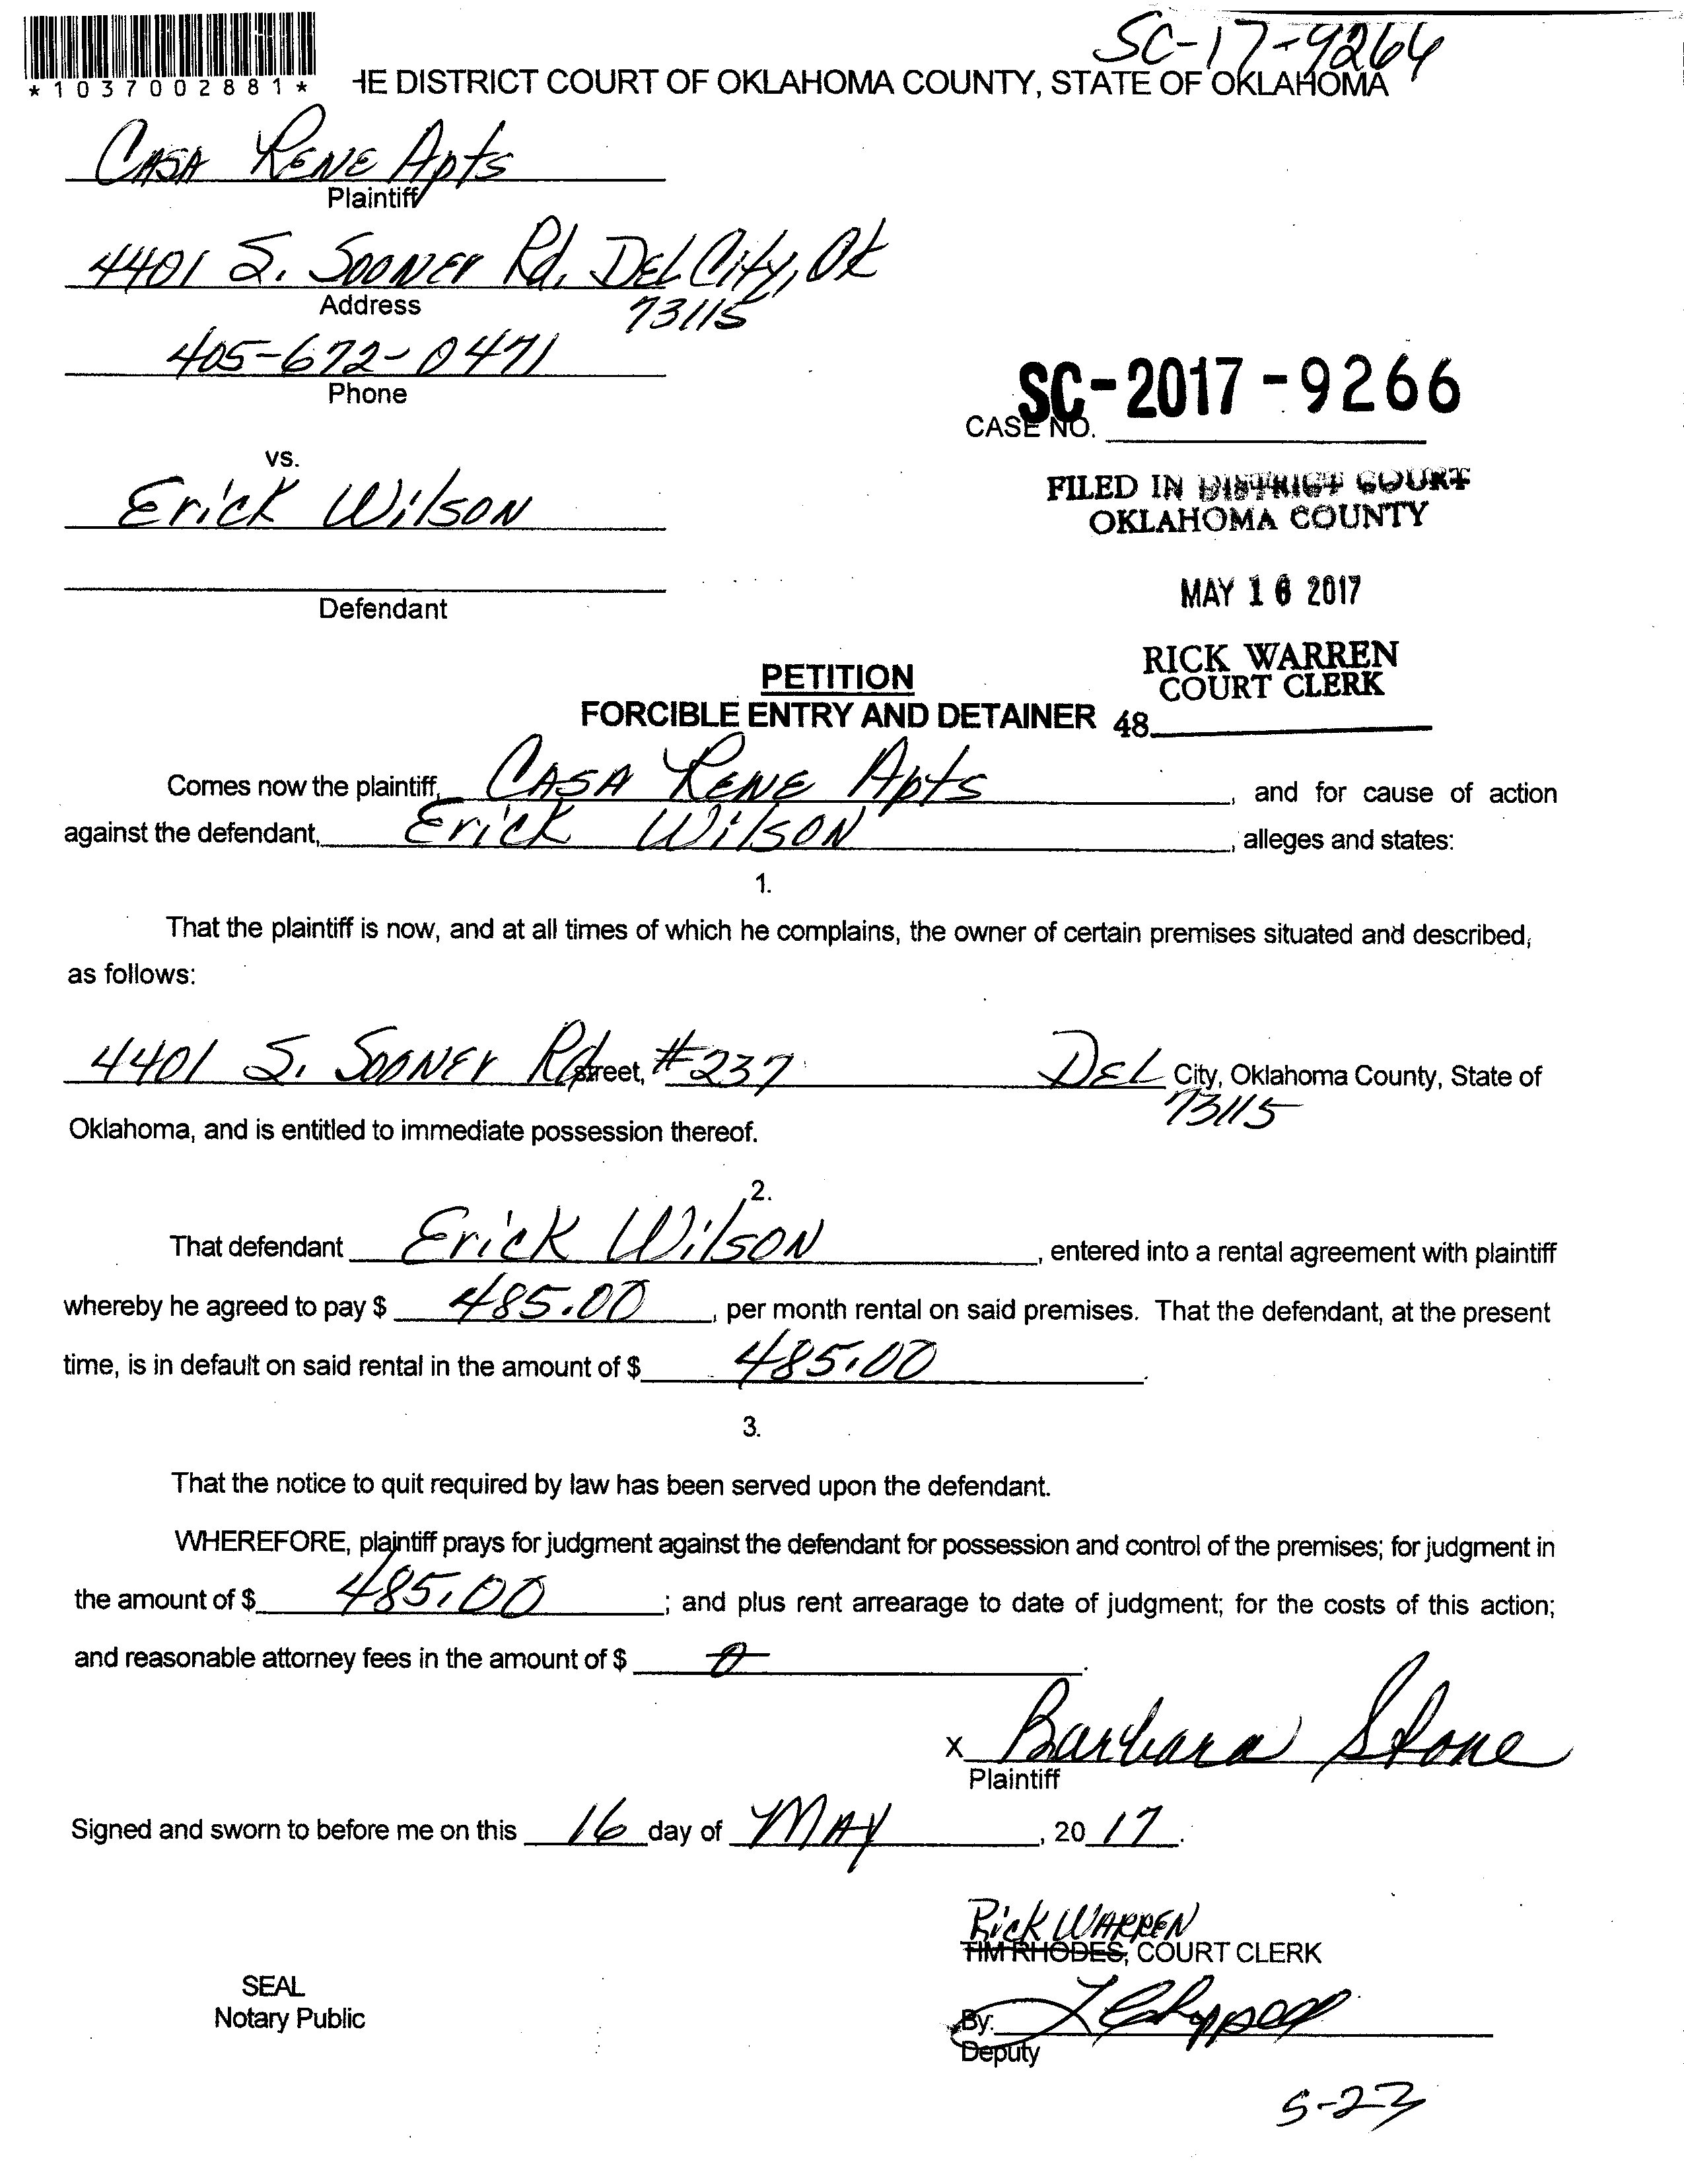 SC-17-9266
*1037002881*
HE DISTRICT COURT OF OKLAHOMA COUNTY, STATE OF OKLAHOMA
CASA RENE Apts
Plaintiff
4401 S. SOONER Rd, DEL City, OK
Address
73115
405-672-0471
Phone
SC-2017-9266
CASE NO.
vs.
Erick Wilson
FILED IN DISTRICT COURT
OKLAHOMA COUNTY
Defendant
MAY 16 2017
RICK WARREN
COURT CLERK
PETITION
FORCIBLE ENTRY AND DETAINER
48
Comes now the plaintiff, CASA RENE Apts, and for cause of action
against the defendant, Erick Wilson, alleges and states:
1.
That the plaintiff is now, and at all times of which he complains, the owner of certain premises situated and described,
as follows:
4401 S. SOONER Rd street, #237 DEL City, Oklahoma County, State of
73115
Oklahoma, and is entitled to immediate possession thereof.
2.
That defendant Erick Wilson, entered into a rental agreement with plaintiff
whereby he agreed to pay $ 485.00, per month rental on said premises. That the defendant, at the present
time, is in default on said rental in the amount of $ 485.00.
3.
That the notice to quit required by law has been served upon the defendant.
WHEREFORE, plaintiff prays for judgment against the defendant for possession and control of the premises; for judgment in
the amount of $ 485.00; and plus rent arrearage to date of judgment; for the costs of this action;
and reasonable attorney fees in the amount of $ 0.
X Barbara Stone
Plaintiff
Signed and sworn to before me on this 16 day of MAY, 20 17.
Rick WARREN
TIM RHODES, COURT CLERK
SEAL
Notary Public
By:
Deputy
5-23